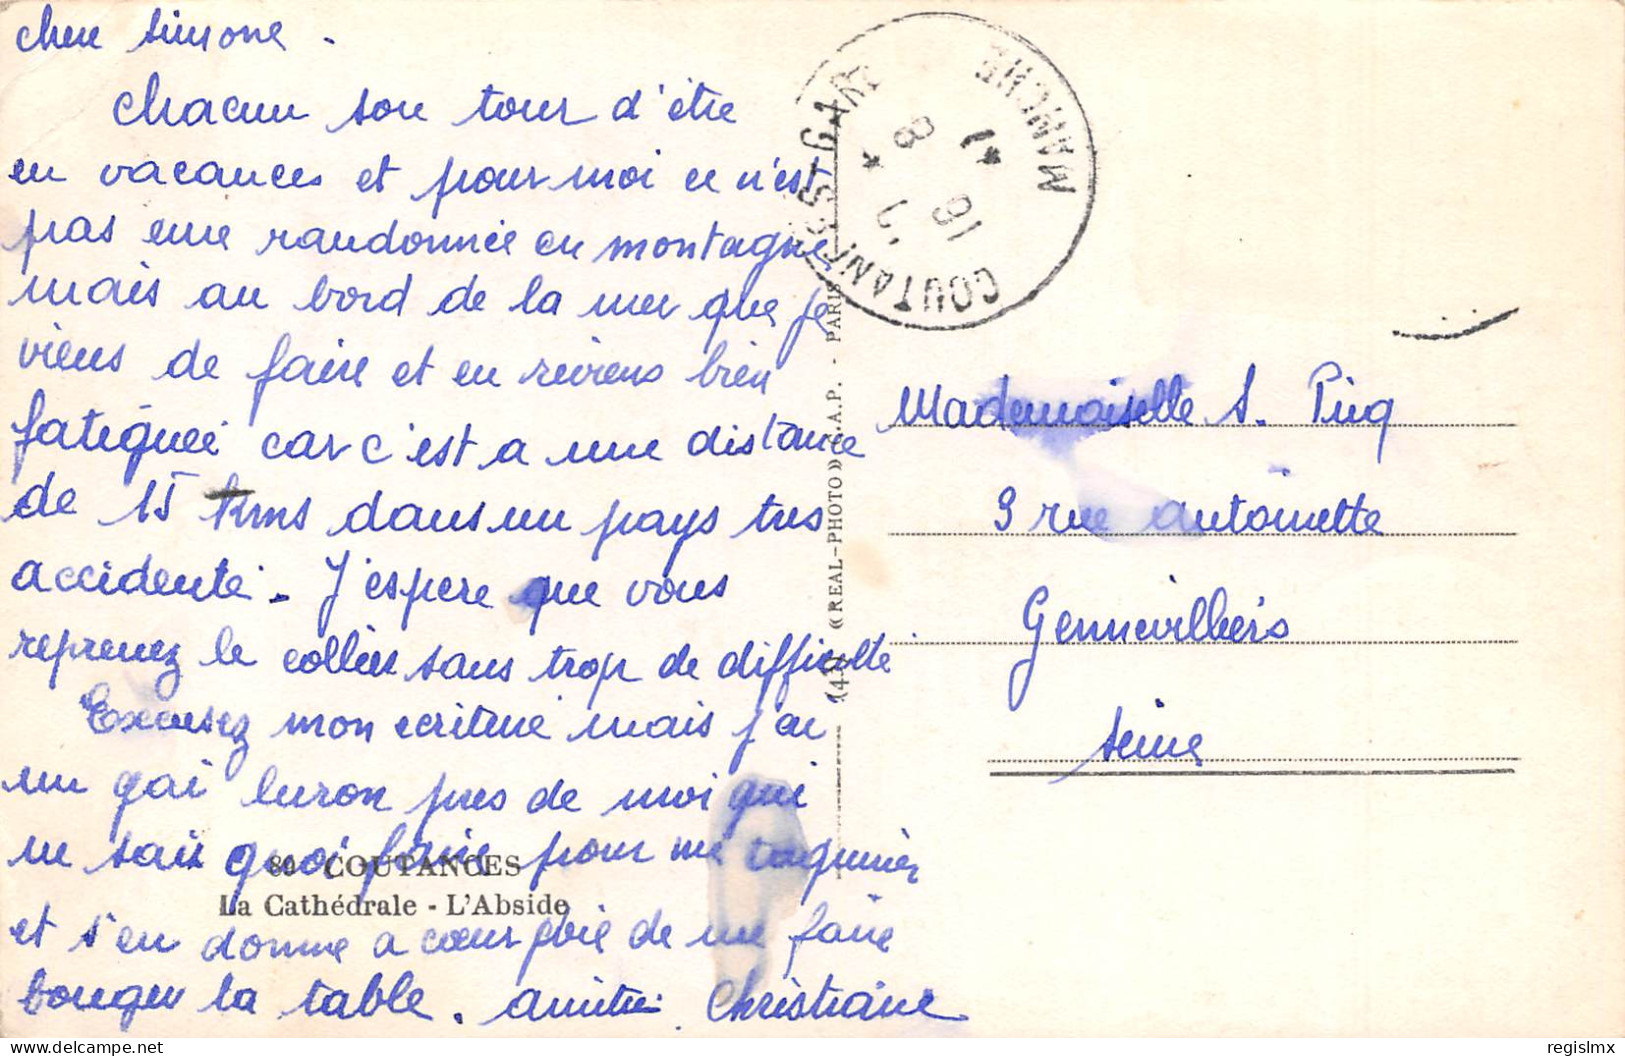 cher Simone.
Chacun son tour d'être
en vacances et pour moi ce n'est
pas une randonnée en montagne
mais au bord de la mer que je
viens de faire et en reviens bien
fatiguée car c'est a une distance
de 15 kms dans un pays tres
accidenté. J'espere que vous
reprenez le collier sans trop de difficulté
Excusez mon ecriture mais j'ai
un gai luron pres de moi qui
ne sait quoi faire pour me taquiner
et s'en donne a coeur joie de me faire
bouger la table. amitié. Christiane
80 COUTANCES
La Cathédrale - L'Abside
(4) « REAL-PHOTO » C.A.P. - PARIS
COUTANCES-GARE
MANCHE
Mademoiselle S. Picq
9 rue antoinette
Gennevilliers
Seine
regislmx